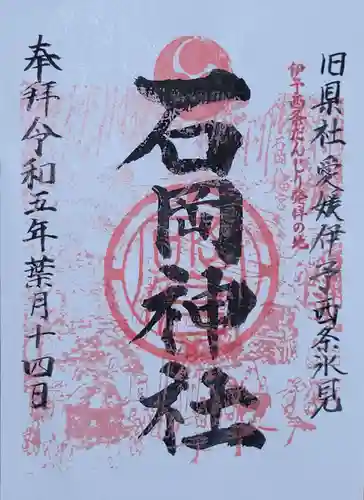 旧県社 愛媛伊予西条氷見
伊予西条だんじり発祥の地
石岡神社
奉拝 令和五年葉月十四日